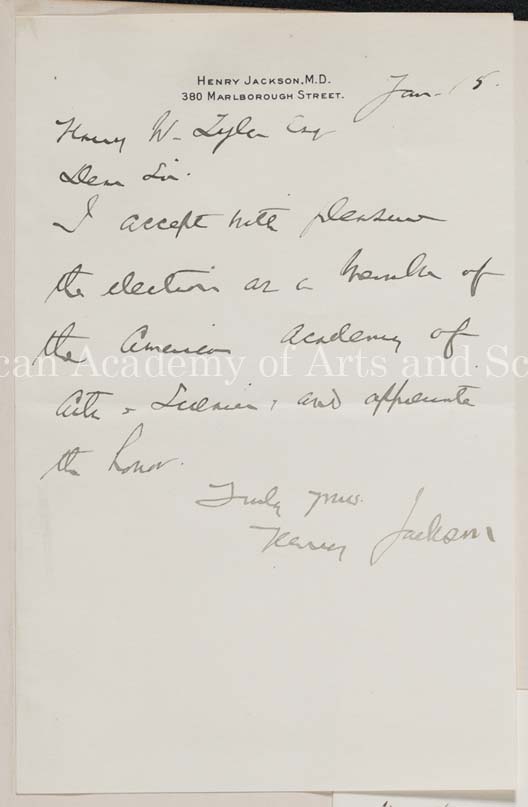 HENRY JACKSON, M.D.
380 MARLBOROUGH STREET.
Jan. 15.
Harry W. Tyler Esq
Dear Sir.
I accept with pleasure
the election as a member of
the American Academy of
can Academy of Arts and Sc
Arts & Sciences, and appreciate
the honor.
Truly yours.
Henry Jackson